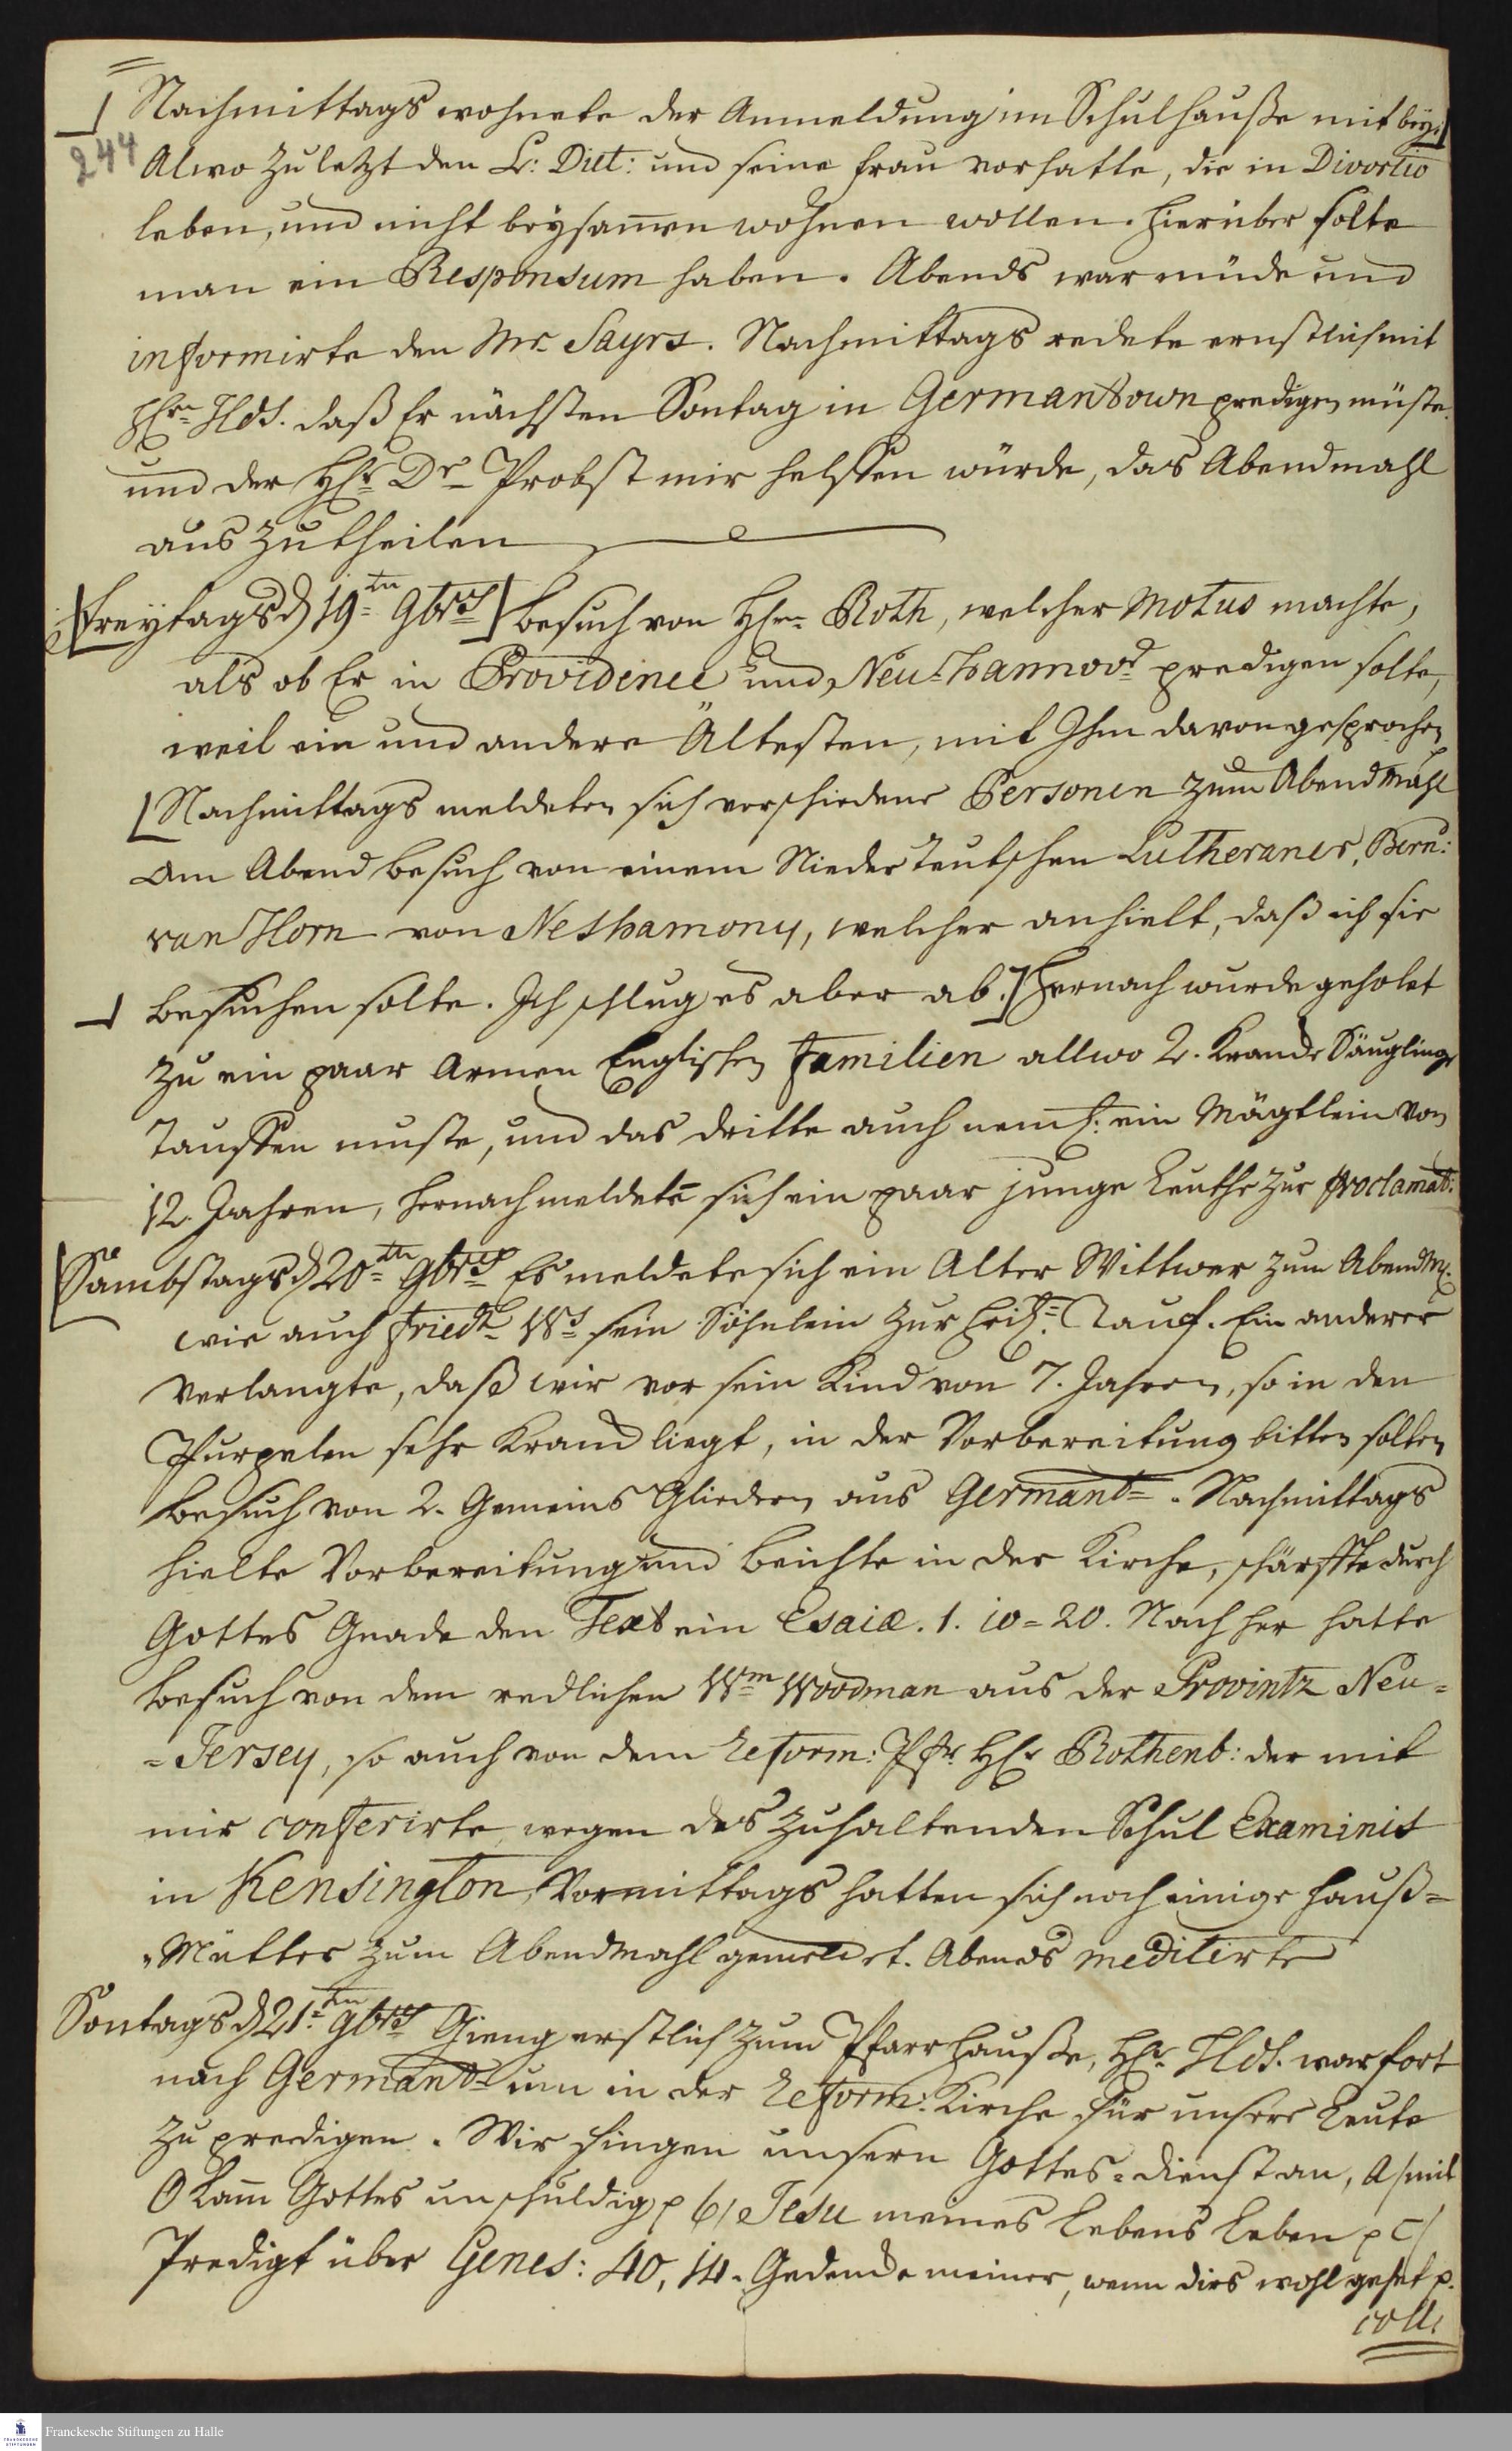 Nachmittags wohnete der Anmeldung im Schulhauße mit bey.
244
Alwo zu letzt den L: Diet: und seine Frau vorhatte, die in Divortio
leben, und nicht beysam̄en wohnen wollen. Hierüber solte
man ein Responsum haben. Abends war müde und
informirte den Mr. Sayrs. Nachmittags redete ernstlich mit
Hrn Hds. daß Er nächsten Sontag in Germantown predigen müste
und der HE. Dr. Probst mir helffen würde, das Abendmahl
aus zu theilen
[Freytags d 19=tn 9brs] Besuch von Hrn. Roth, welcher Motus machte,
als ob Er in Providence und Neu-hannovr predigen solte,
weil ein und andere Ältesten, mit Ihm davon gesprochen
[Nachmittags meldeten sich verschiedene Personen zum Abendmahl
am Abend besuch von einem Nieder Teutschen Lutheraner, Bern:
van Horn von Neshamony, welcher anhielt, daß ich sie
besuchen solte. Ich schlug es aber ab.] Hernach wurde geholet
zu ein paar Armen Englischen Familien allwo 2. Krancke Säuglinge
Tauffen muste, und das dritte auch neml: ein Mägtlein von
12. Jahren, hernach meldete sich ein paar junge Leuthe zur proclamat:
[Sambstags d 20=tn 9brs Es meldete sich ein Alter Wittwer zum Abendm.
wie auch Friedr. Ws sein Söhnlein zur heil: Tauf. Ein anderer
verlangte, daß wir vor sein Kind von 7. Jahren, so in den
Purpelen sehr Kranck liegt, in der Vorbereitung bitten solten
Besuch von 2. Gemeins Gliedern aus Germant=. Nachmittags
hielte Vorbereitung und Beichte in der Kirche, schärffte durch
Gottes Gnade den Text ein Esaiæ. 1. 10=20. Nach her hatte
besuch von dem redlichen Wm Woodman aus der Provintz Neu=
=Jersey, so auch von dem Reform: Pfr HE Rothenb: der mit
mir conferirte wegen des zuhaltenden Schul Examinis
in Kensington, Vormittags hatten sich noch einige Hauß=
=Mütter zum Abendmahl gemeldet. Abends meditirte
Sontags d 21=tn 9brs Gieng erstlich zum Pfarr Hauße, HE. Hds. war fort
nach Germant= um in der Reform: Kirche für unsere Leute
zu predigen. Wir fingen unsern Gottes=dienst an, a/ mit
O Lam̄ Gottes unschuldig p b/ Jesu meines Lebens Leben p c/
Predigt über Genes: 40, 14. Gedencke meiner, wenn dirs wohl gehet p.
coll:
Franckesche Stiftungen zu Halle